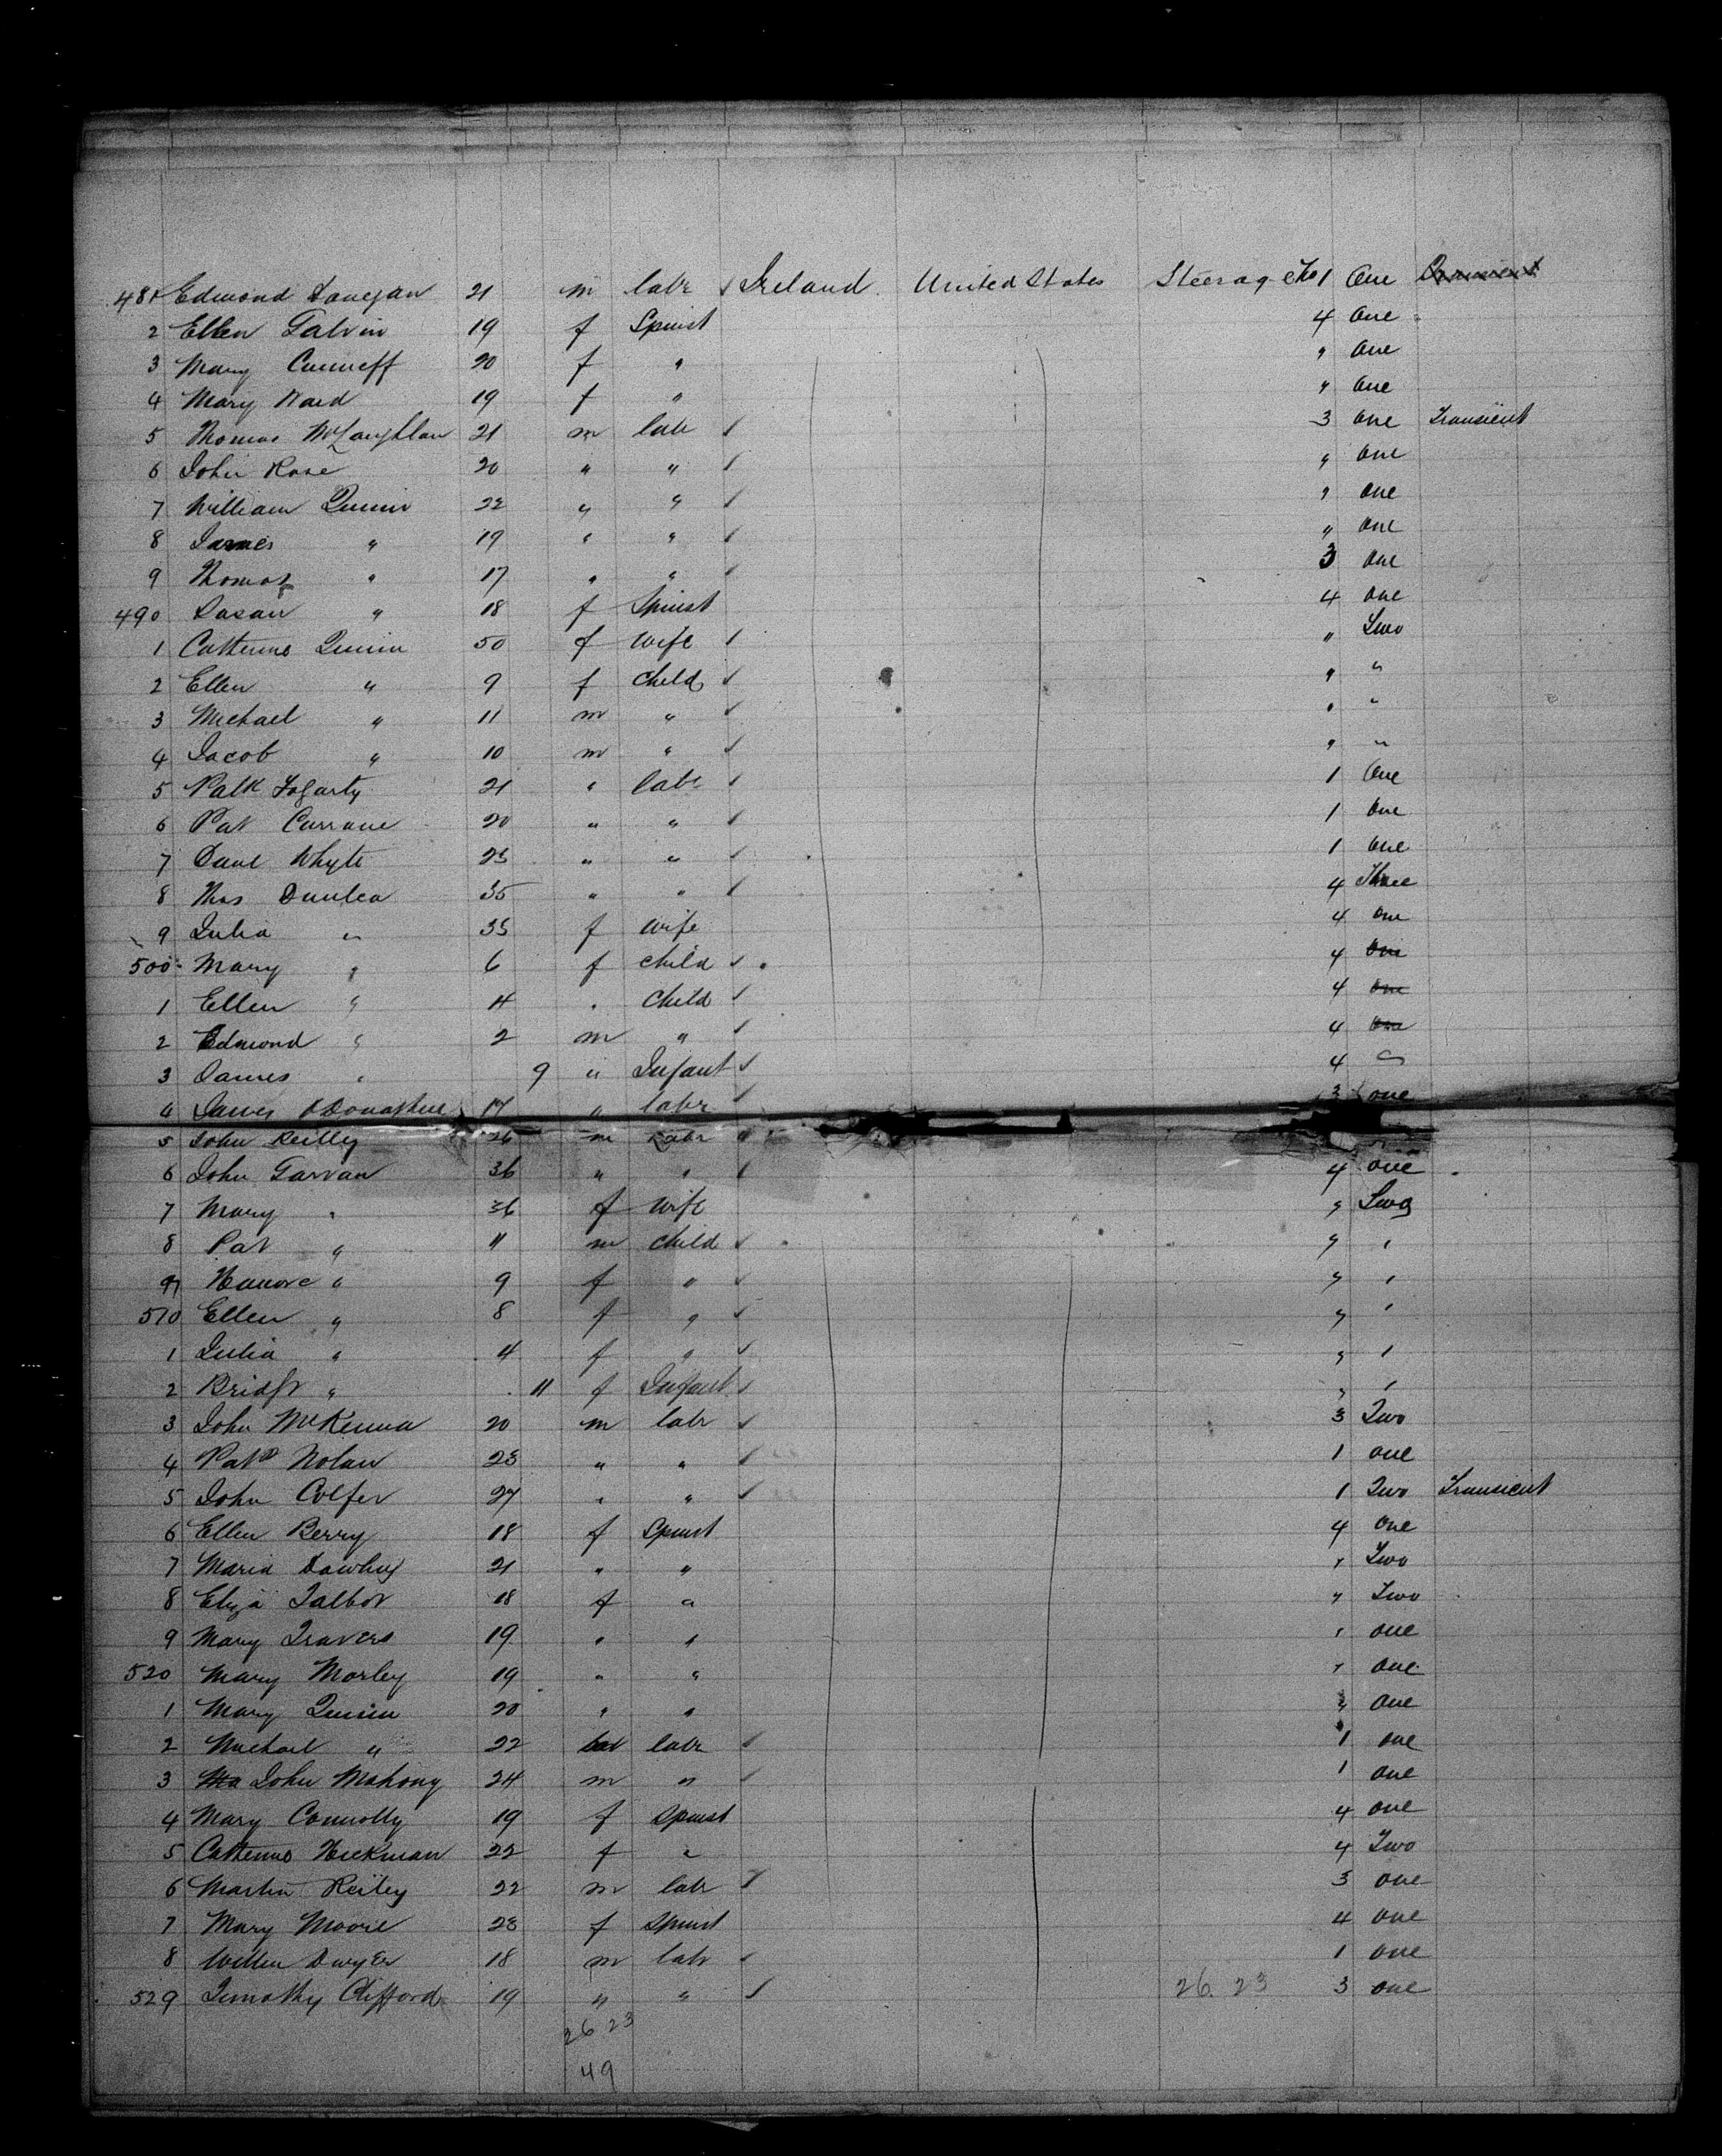 481 Edmond Lanegan 21 m labr ✓ Ireland United States Steerage No 1 One
2 Ellen Galvin 19 f Spinst 4 One
3 Mary Cunneff 20 f " " One
4 Mary Ward 19 f " " One
5 Thomas McLaughlan 21 m labr ✓ 3 One Transient
6 John Rose 20 " " ✓ " One
7 William Quinn 22 " " ✓ " One
8 James " 19 " " ✓ " One
9 Thomas " 17 " " ✓ 3 One
490 " 18 f Spinst 4 One
1 Catherine Quinn 50 f Wife ✓ " Two
2 Ellen " 9 f Child ✓ " "
3 Michael " 11 m " ✓ " "
4 Jacob " 10 m " ✓ " "
5 Patk Fogarty 21 " labr ✓ 1 One
6 Pat Currane 20 " " ✓ 1 One
7 Danl Whyte 23 " " ✓ 1 One
8 Thos Dunlea 35 " " ✓ 4 Three
9 Julia " 35 f Wife 4 One
500 Mary " 6 f Child ✓ 4 One
1 Ellen " 4 " Child ✓ 4 One
2 Edmond " 2 m " ✓ 4 One
3 James " 9 " Infant ✓ 4 "
4 James ODonaghue 17 " labr ✓ 3 One
5 John Reilly 26 m Labr ✓
6 John Garvan 36 " " ✓ 4 One
7 Mary " 36 f Wife " Two
8 Pat " 11 m Child ✓ " "
9 Hanore " 9 f " ✓ " "
510 Ellen " 8 f " ✓ " "
1 Julia " 4 f " ✓ " "
2 Bridgt " 11 f Infant ✓ " "
3 John McKenna 20 m labr ✓ 3 Two
4 Pat Nolan 23 " " ✓ 1 One
5 John Colfer 27 " " ✓ 1 Two Transient
6 Ellen Berry 18 f Spinst 4 One
7 Maria 21 " " " Two
8 Eliza Talbot 18 f " " Two
9 Mary Travers 19 " " " One
520 Mary Morley 19 " " " One
1 Mary Quinn 20 " " " One
2 Michael " 22 labr ✓ 1 One
3 John Mahony 24 m " ✓ 1 One
4 Mary Connolly 19 f Spinst 4 One
5 Catherine Hickman 22 f " 4 Two
6 Martin Reiley 22 m labr ✓ 3 One
7 Mary Moore 23 f Spinst 4 One
8 Willm Dwyer 18 m labr ✓ 1 One
529 Timothy Clifford 19 " " ✓ 26. 23 3 One
26 23
49